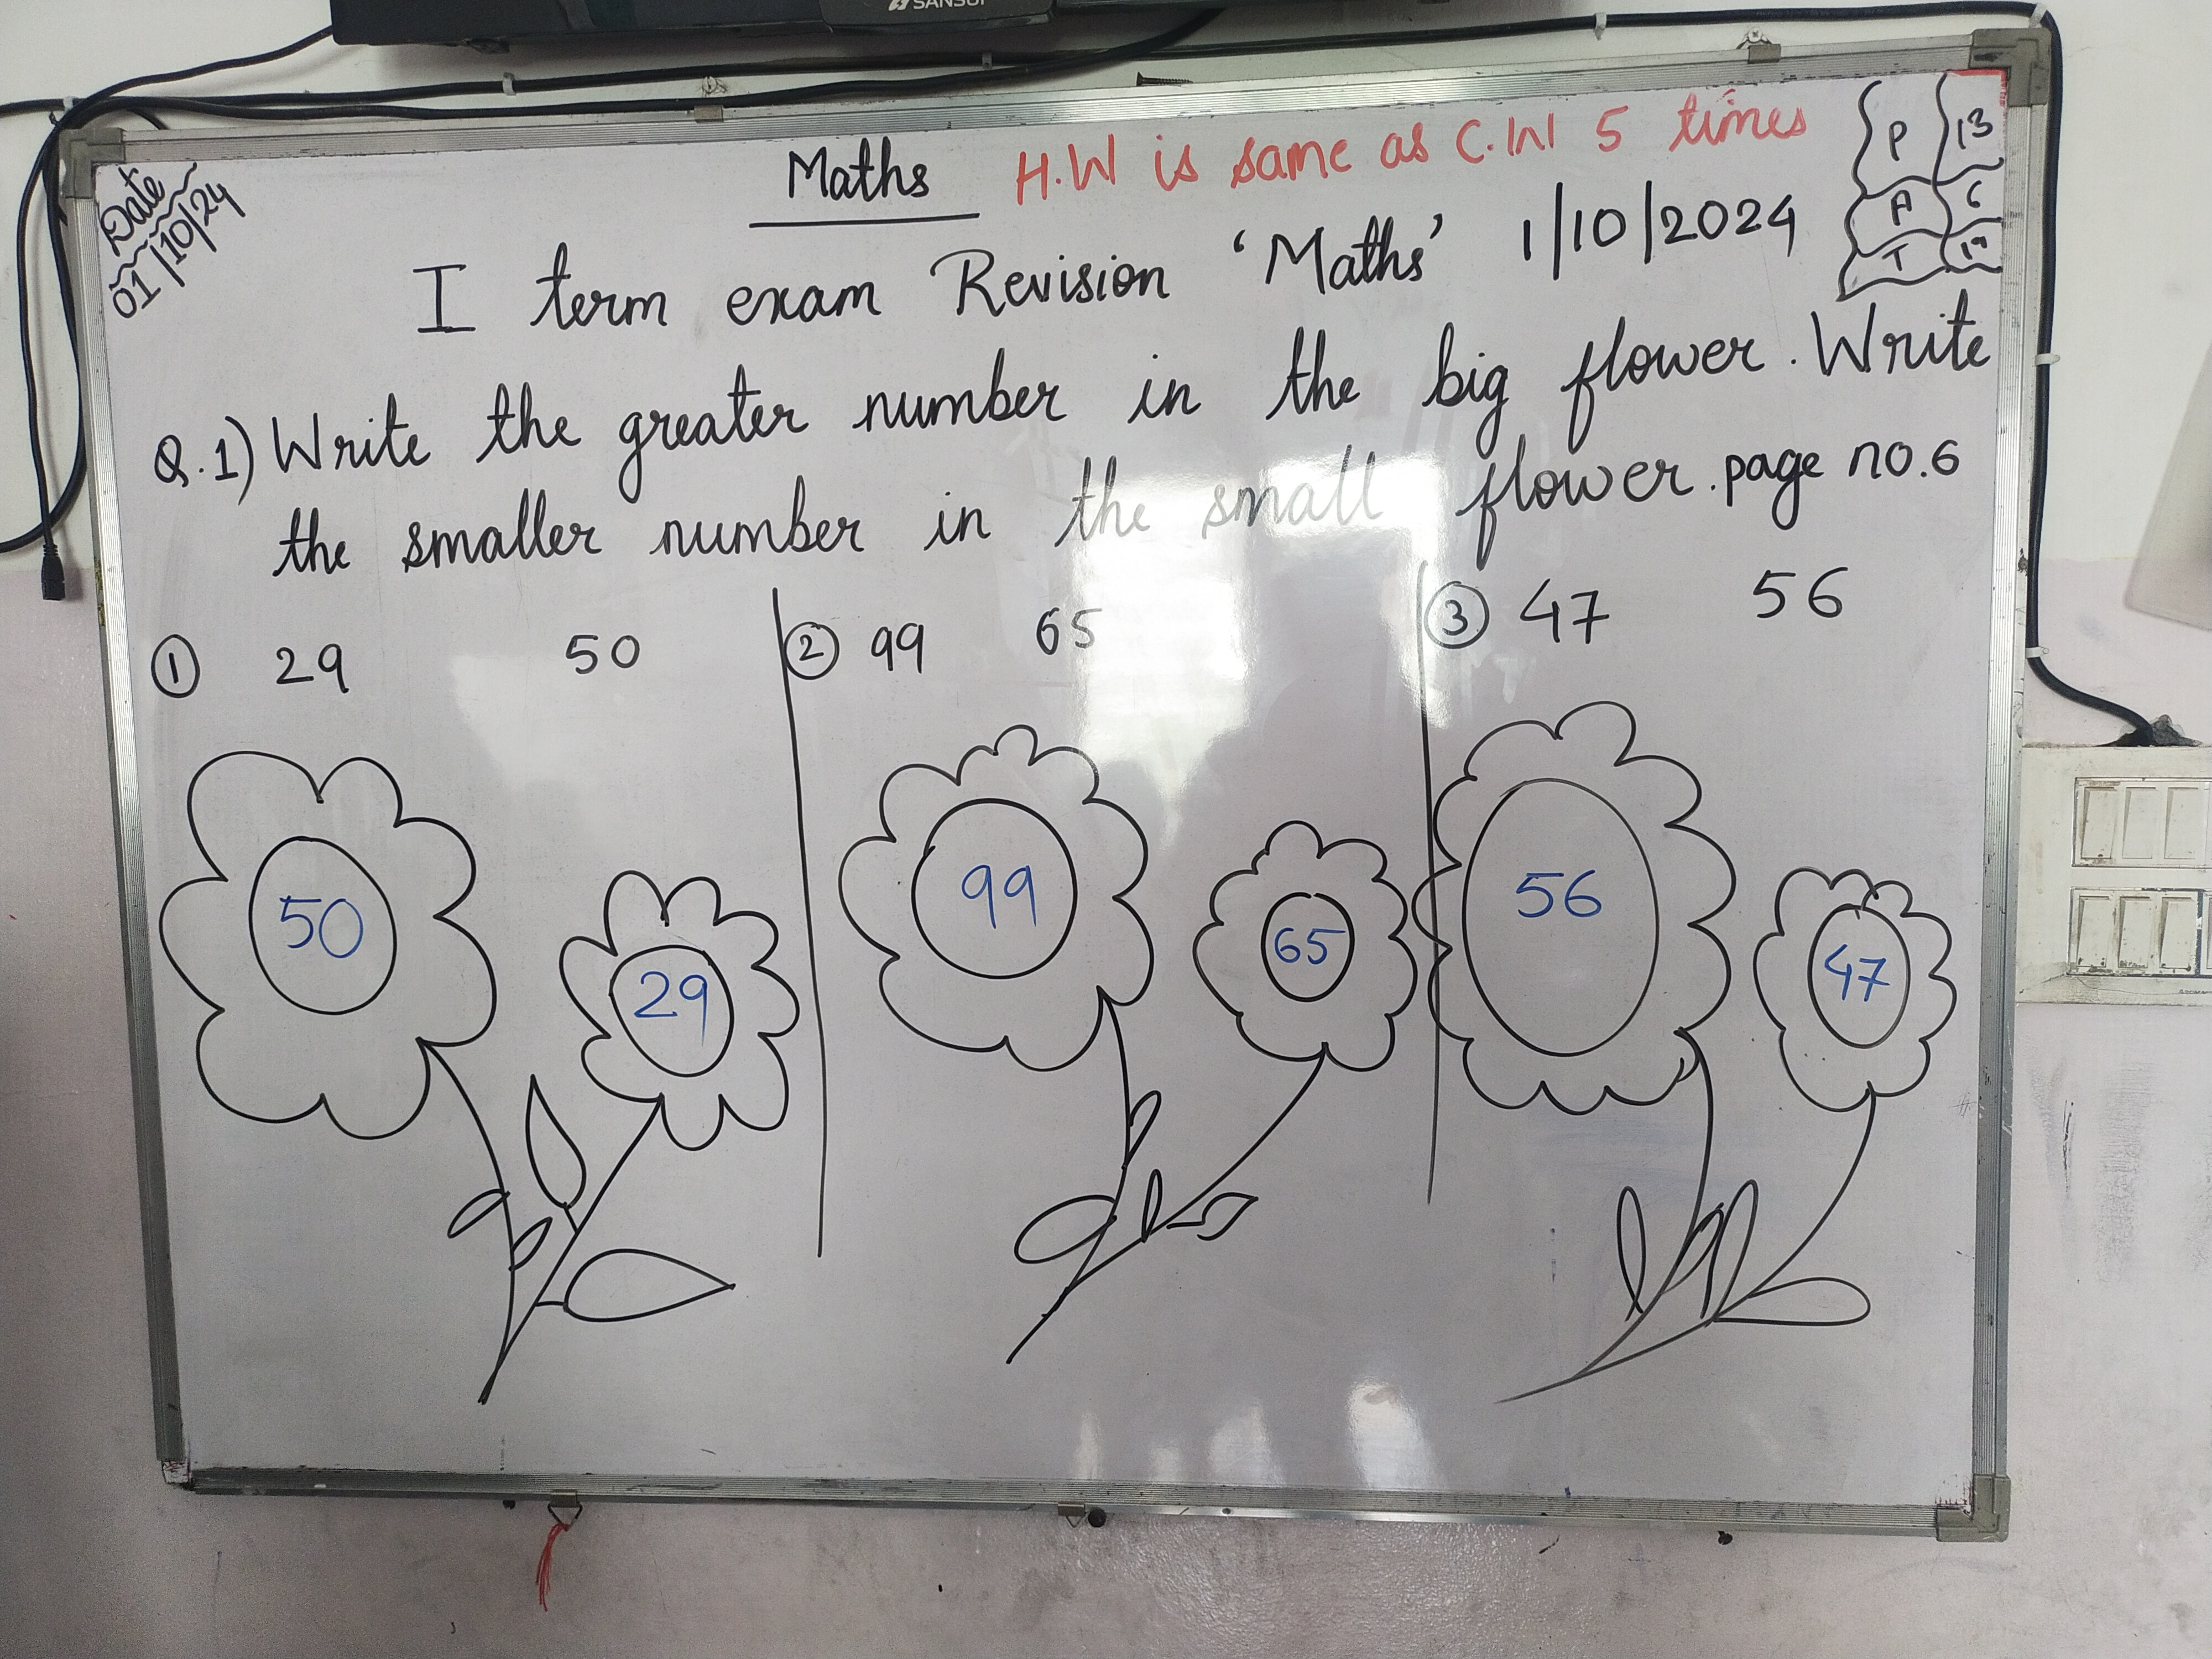 SANSUI
Date
01/10/24
Maths
H.W is same as C.W 5 times
P 13
A 6
T 19
I term exam Revision 'Maths' 1/10/2024
Q.1) Write the greater number in the big flower. Write
the smaller number in the small flower. page no.6
① 29 50
② 99 65
③ 47 56
50 29
99 65
56 47